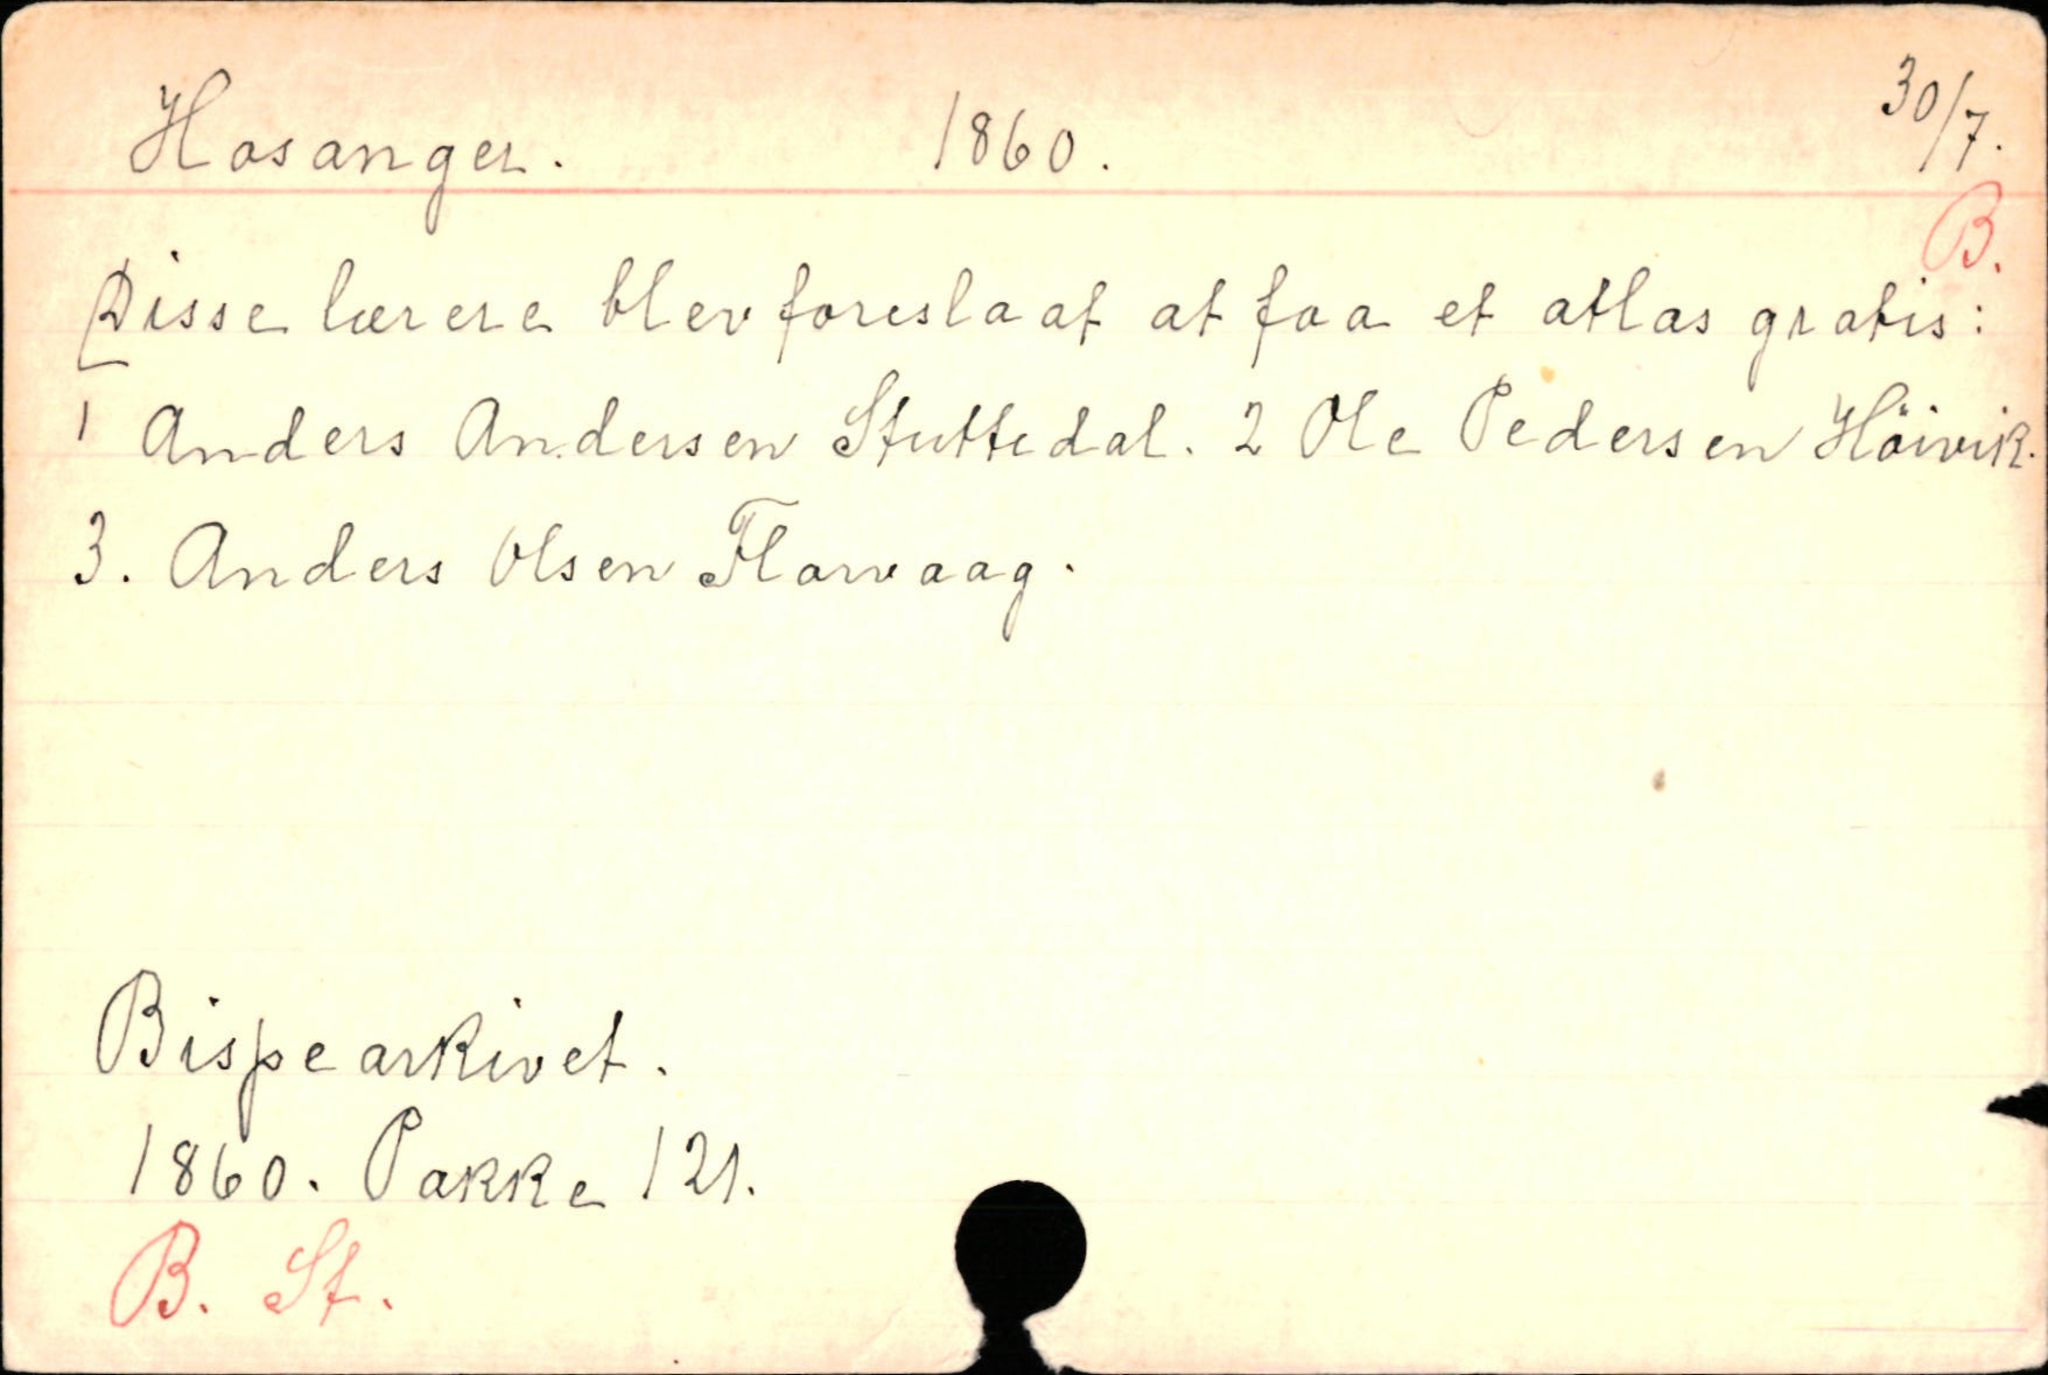 Hosanger. 1860. 30/7.
B.
Disse lærere blev foreslaat at faa et atlas gratis:
1 Anders Andersen Stuttedal. 2 Ole Pedersen Höivik.
3. Anders Olsen Florvaag.
Bispearkivet.
1860. Pakke 121.
B. St.